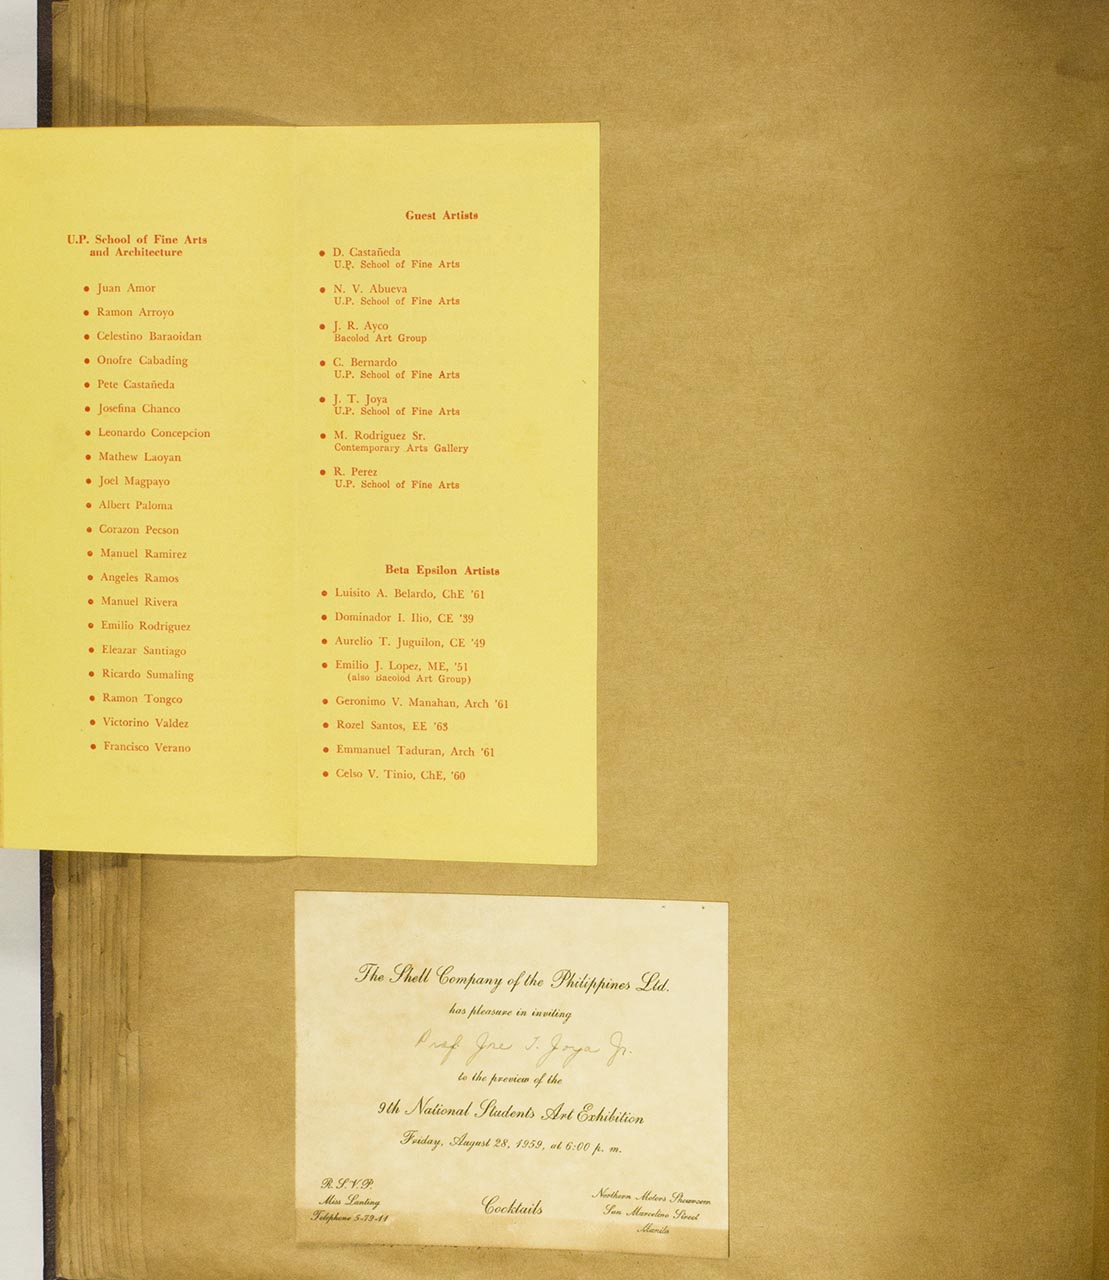 U.P. School of Fine Arts
and Architecture
• Juan Amor
• Ramon Arroyo
• Celestino Baraoidan
• Onofre Cabading
• Pete Castañeda
• Josefina Chanco
• Leonardo Concepcion
• Mathew Laoyan
• Joel Magpayo
• Albert Paloma
• Corazon Pecson
• Manuel Ramirez
• Angeles Ramos
• Manuel Rivera
• Emilio Rodriguez
• Eleazar Santiago
• Ricardo Sumaling
• Ramon Tongco
• Victorino Valdez
• Francisco Verano
Guest Artists
• D. Castañeda
U.P. School of Fine Arts
• N. V. Abueva
U.P. School of Fine Arts
• J. R. Ayco
Bacolod Art Group
• C. Bernardo
U.P. School of Fine Arts
• J. T. Joya
U.P. School of Fine Arts
• M. Rodriguez Sr.
Contemporary Arts Gallery
• R. Perez
U.P. School of Fine Arts
Beta Epsilon Artists
• Luisito A. Belardo, ChE '61
• Dominador I. Ilio, CE '39
• Aurelio T. Juguilon, CE '49
• Emilio J. Lopez, ME, '51
(also Bacolod Art Group)
• Geronimo V. Manahan, Arch '61
• Rozel Santos, EE '63
• Emmanuel Taduran, Arch '61
• Celso V. Tinio, ChE, '60
The Shell Company of the Philippines Ltd.
has pleasure in inviting
Prof Jose T. Joya Jr.
to the preview of the
9th National Students Art Exhibition
Friday, August 28, 1959, at 6:00 p. m.
R.S.V.P.
Miss Lanting
Telephone 5-79-11
Cocktails
Northern Motors Showroom
San Marcelino Street
Manila